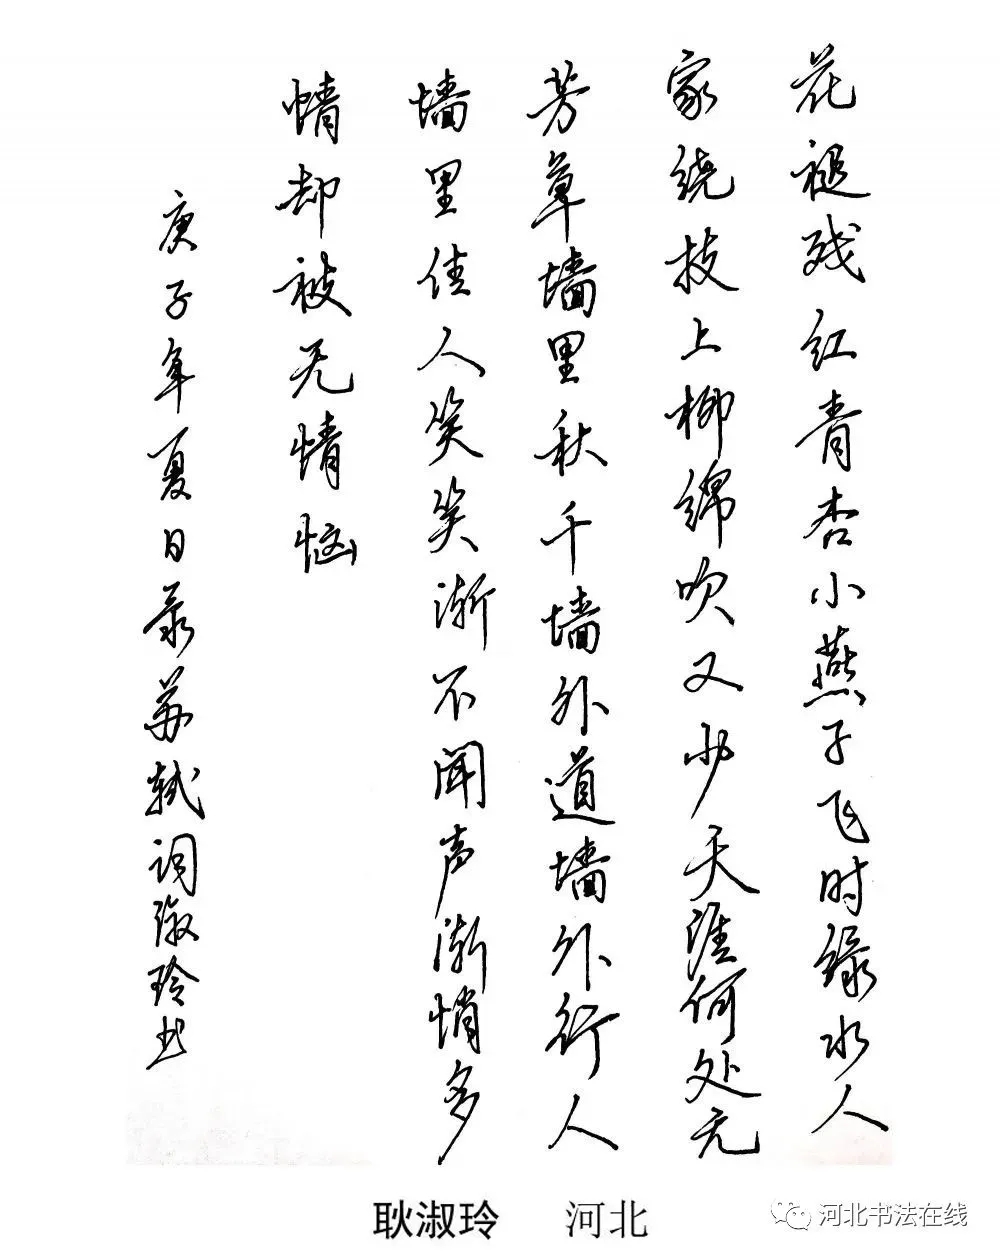 花褪残红青杏小燕子飞时绿水人
家绕枝上柳绵吹又少天涯何处无
芳草墙里秋千墙外道墙外行人
墙里佳人笑笑渐不闻声渐悄多
情却被无情恼
庚子年夏日录苏轼词淑玲书
耿淑玲 河北
河北书法在线